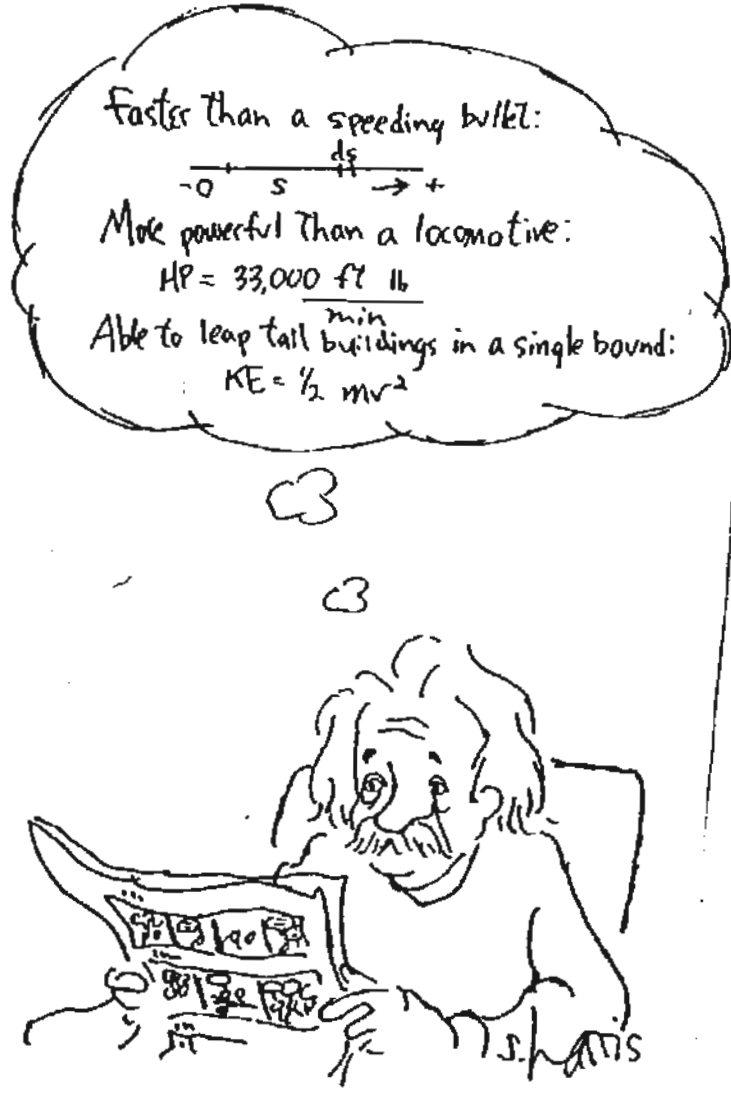 Faster Than a speeding bullet:
ds
-0 S → +
More powerful Than a locomotive:
HP = 33,000 ft lb
min
Able to leap tall buildings in a single bound:
KE = 1/2 mv²
S. Harris